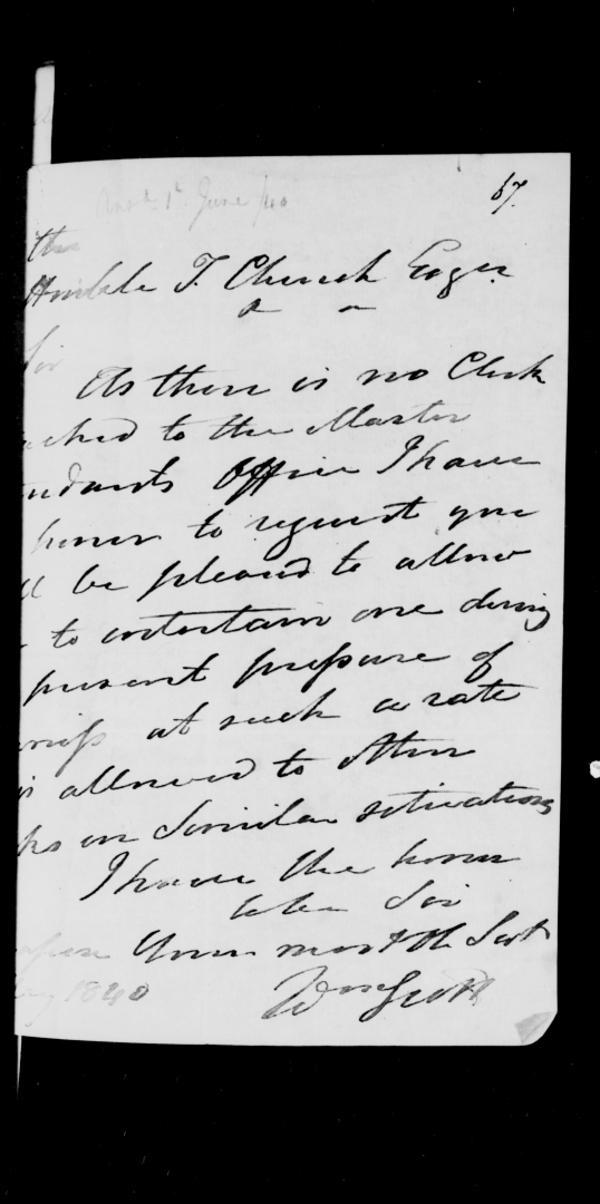 67.
1st June /40
the
Honble T. Church Esqre
Sir
As there is no Clerk
ached to the Master
ndants Office I have
honor to request you
ll be pleased to allow
to entertain one during
present pressure of
iness at such a rate
is allowed to other
ks in similar situations
I have the honor
to be Sir
apore Your most Ob Servt
ay 1840 Wm Scott